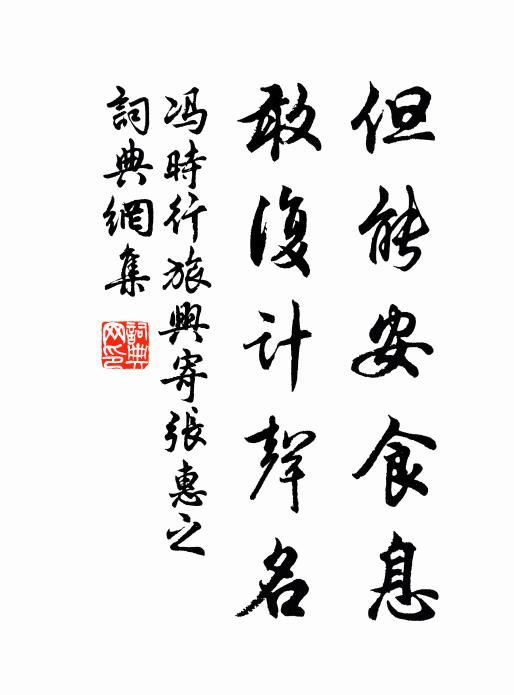 但能安食息
敢復计聲名
冯時行旅興寄張惠之
詞典網集
詞典
网印